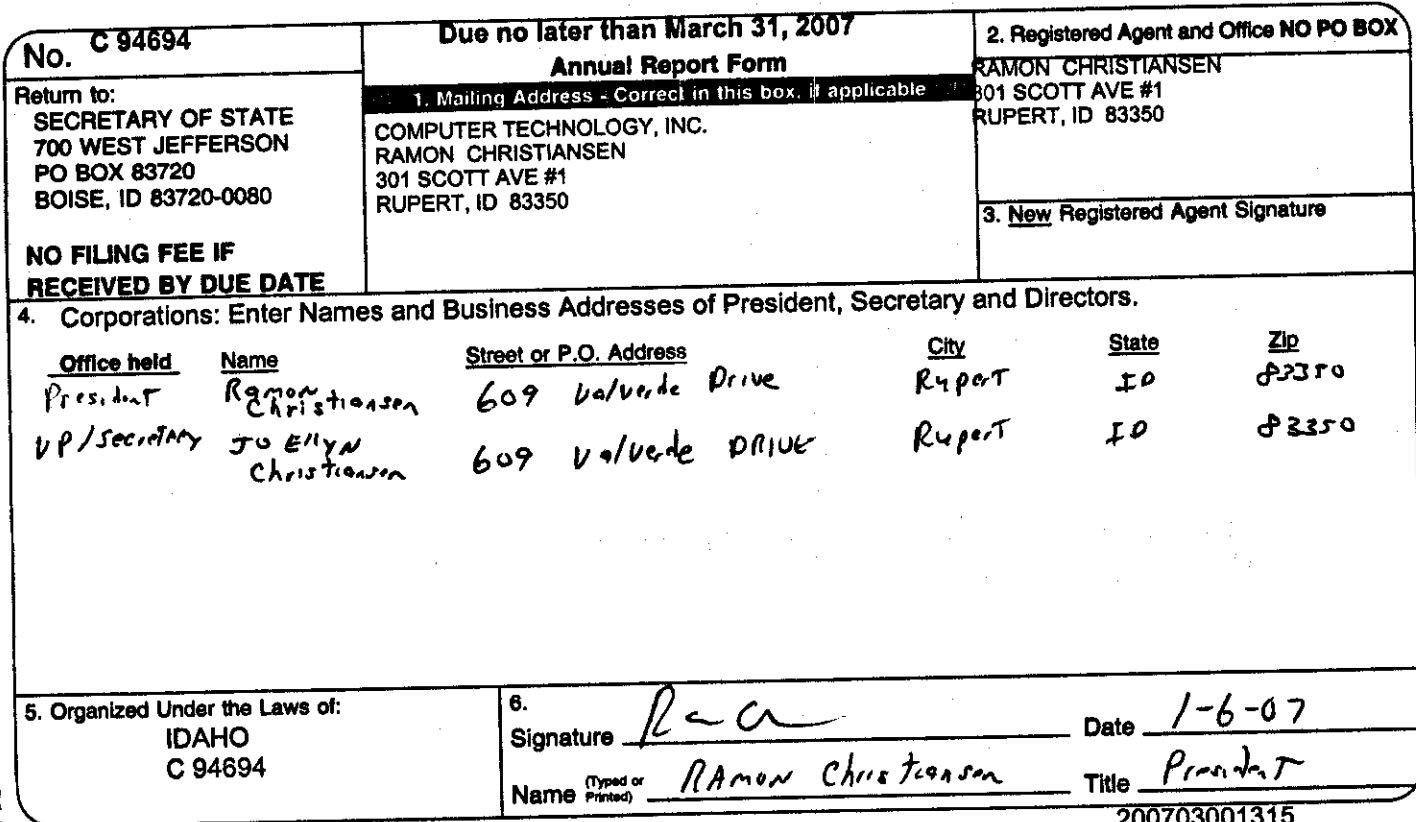 No. C 94694
Due no later than March 31, 2007
Annual Report Form
Return to:
SECRETARY OF STATE
700 WEST JEFFERSON
PO BOX 83720
BOISE, ID 83720-0080
NO FILING FEE IF
RECEIVED BY DUE DATE
1. Mailing Address - Correct in this box, if applicable
COMPUTER TECHNOLOGY, INC.
RAMON CHRISTIANSEN
301 SCOTT AVE #1
RUPERT, ID 83350
2. Registered Agent and Office NO PO BOX
RAMON CHRISTIANSEN
301 SCOTT AVE #1
RUPERT, ID 83350
3. New Registered Agent Signature
4. Corporations: Enter Names and Business Addresses of President, Secretary and Directors.
Office held Name Street or P.O. Address City State Zip
President Ramon Christiansen 609 Valverde Drive Rupert ID 83350
VP/Secretary Jo Ellyn Christiansen 609 Valverde DRIVE Rupert ID 83350
5. Organized Under the Laws of:
IDAHO
C 94694
6.
Signature Date 1-6-07
Name (Typed or Printed) RAmon Christiansen Title President
200703001315